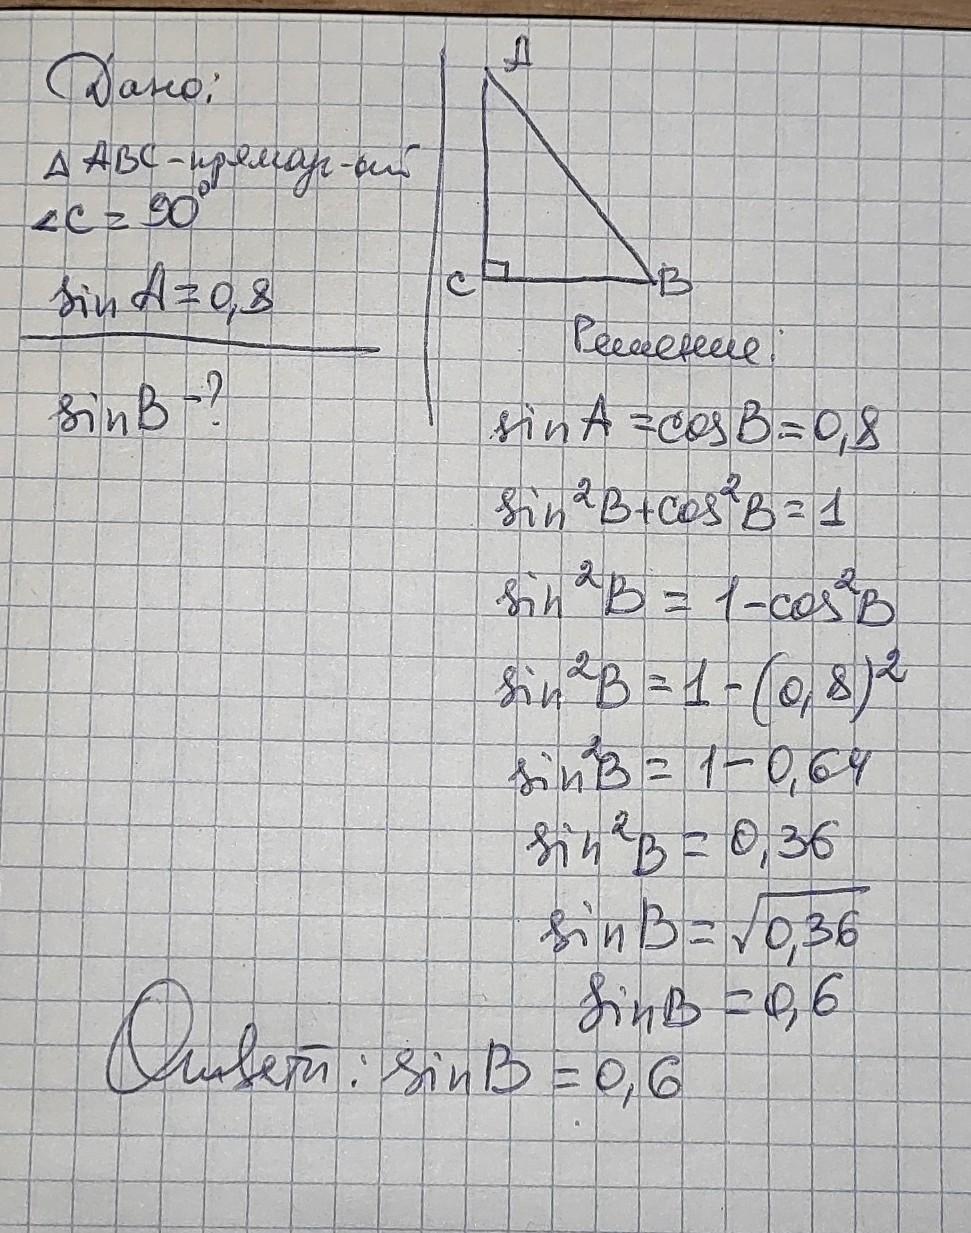 Дано:
△ABC-прямоуг-ый
∠C = 90°
sin A = 0,8
sin B - ?
A
C
B
Решение:
sin A = cos B = 0,8
sin²B + cos²B = 1
sin²B = 1 - cos²B
sin²B = 1 - (0,8)²
sin²B = 1 - 0,64
sin²B = 0,36
sin B = √0,36
sin B = 0,6
Ответ: sin B = 0,6